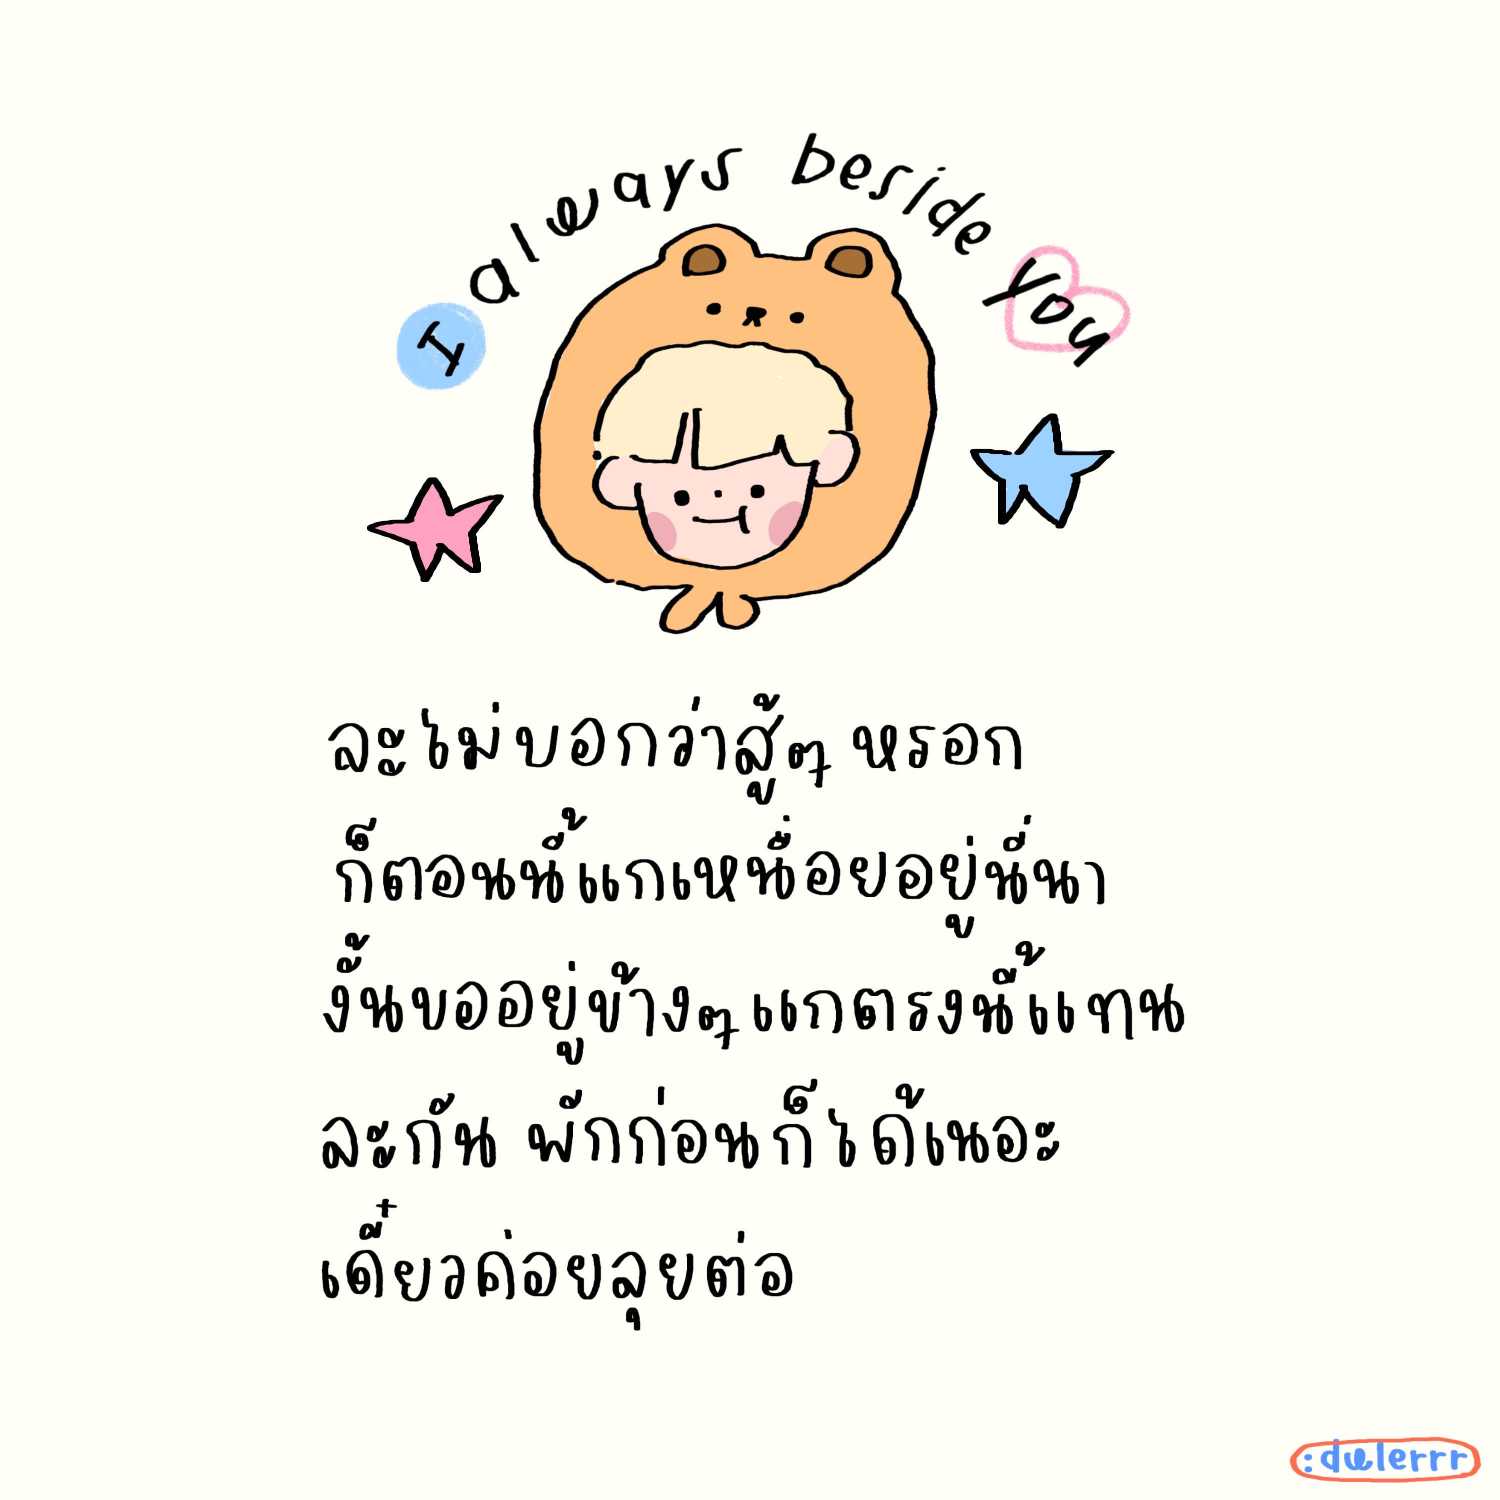 I always beside you
ละไม่บอกว่าสู้ๆ หรอก
ก็ตอนนี้แกเหนื่อยอยู่นี่นา
งั้นขออยู่ข้างๆแกตรงนี้แทน
ละกัน พักก่อนก็ได้เนอะ
เดี๋ยวค่อยลุยต่อ
:dwlerrr